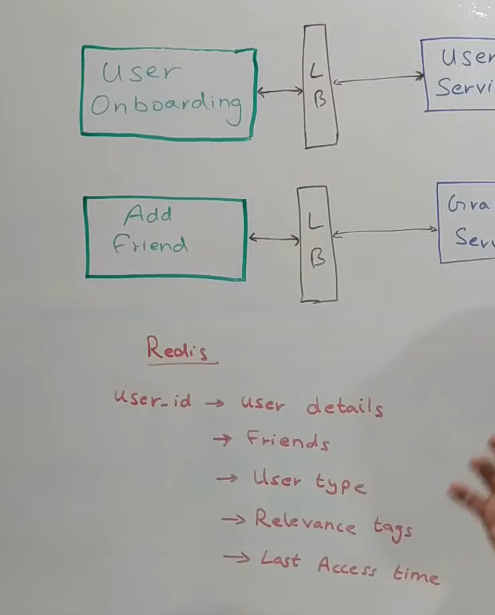 User
Onboarding
L
B
User
Add
Friend
L
B
Redis
user_id → user details
→ Friends
→ User type
→ Relevance tags
→ Last Access time